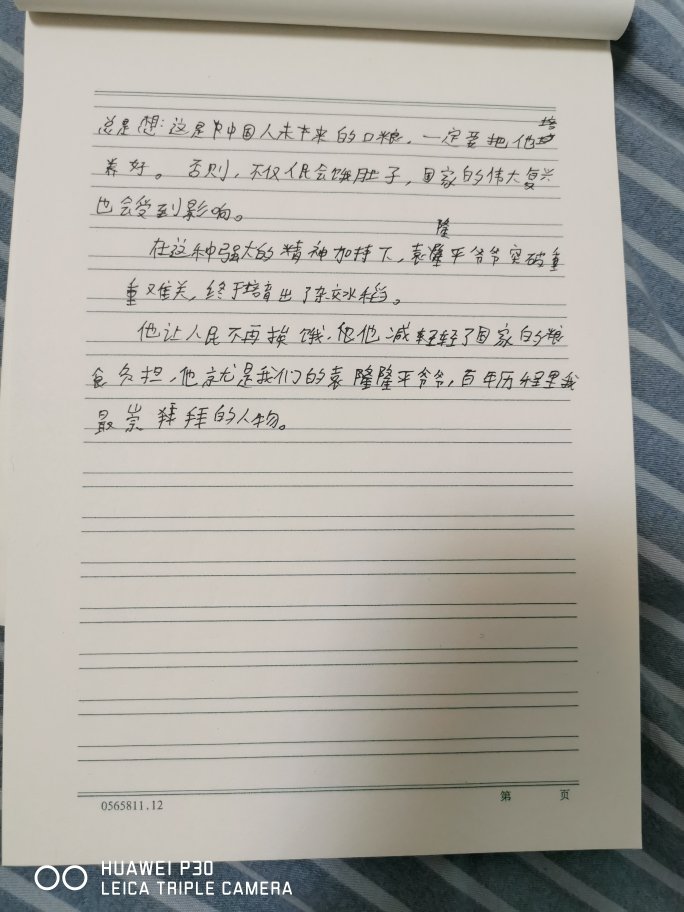 培
总是想:这是中国人未来的口粮,一定要把他
养好。否则,不仅人民会饿肚子,国家的伟大复兴
也会受到影响。
隆
在这种强大的精神加持下,袁隆平爷爷突破重
重难关,终于培育出了杂交水稻。
他让人民不再挨饿,他他减轻轻了国家的粮
食负担,他就是我们的袁隆隆平爷爷,百年历程里我
最崇拜拜的人物。
0565811.12
第 页
HUAWEI P30
LEICA TRIPLE CAMERA